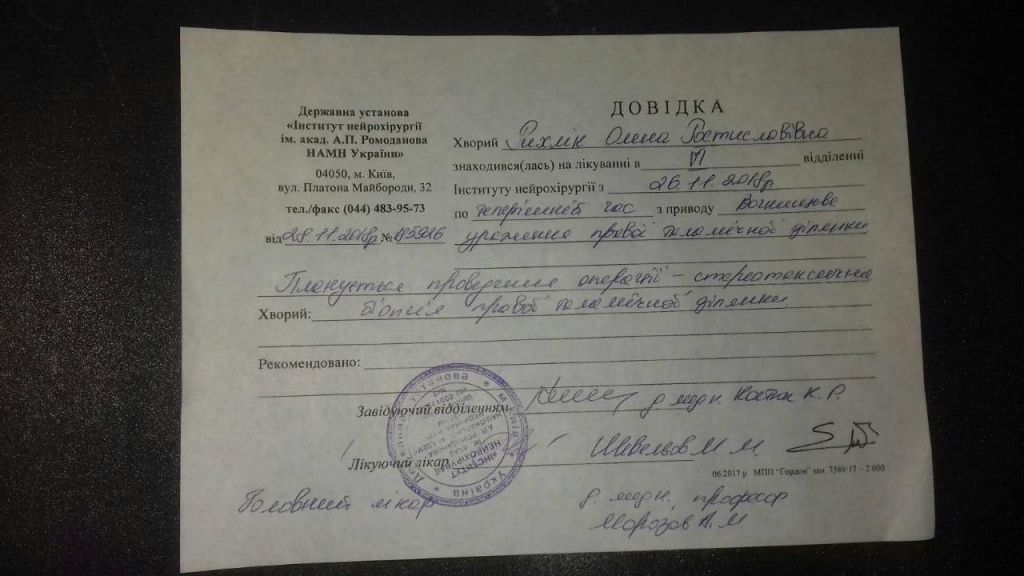 Державна установа
«Інститут нейрохірургії
ім. акад. А.П. Ромоданова
НАМН України»
04050, м. Київ,
вул. Платона Майбороди, 32
тел./факс (044) 483-95-73
від 28.11.2018р №
ДОВІДКА
Хворий Рихлік Олена Ростиславівна
знаходився(лась) на лікуванні в відділенні
Інституту нейрохірургії з 26.11.2018р
по теперішній час з приводу Вогнищеве
ураження правої таламічної ділянки
Планується проведення операції – стереотаксична
Хворий: біопсія правої таламічної ділянки
Рекомендовано:
Завідуючий відділенням д. медн. Костюк К. Р.
Лікуючий лікар Шевельов М. М.
06.2017 р. МПП "Гордон" зам. 7369 17 - 2.000
Головний лікар д. медн. професор
Морозов А. М